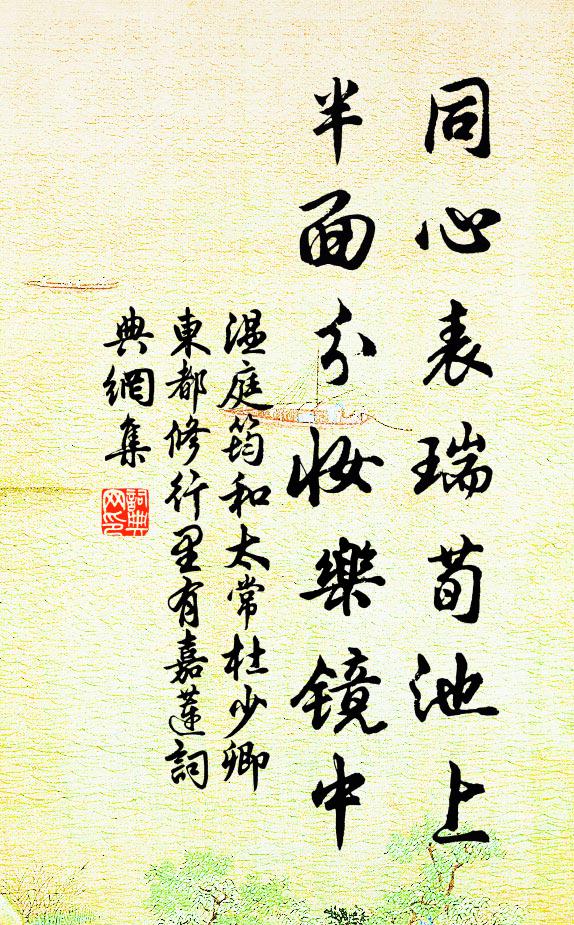 同心表瑞荀池上
半面分妝樂镜中
温庭筠和太常杜少卿
東都修行里有嘉蓮詞
典網集
詞典網印